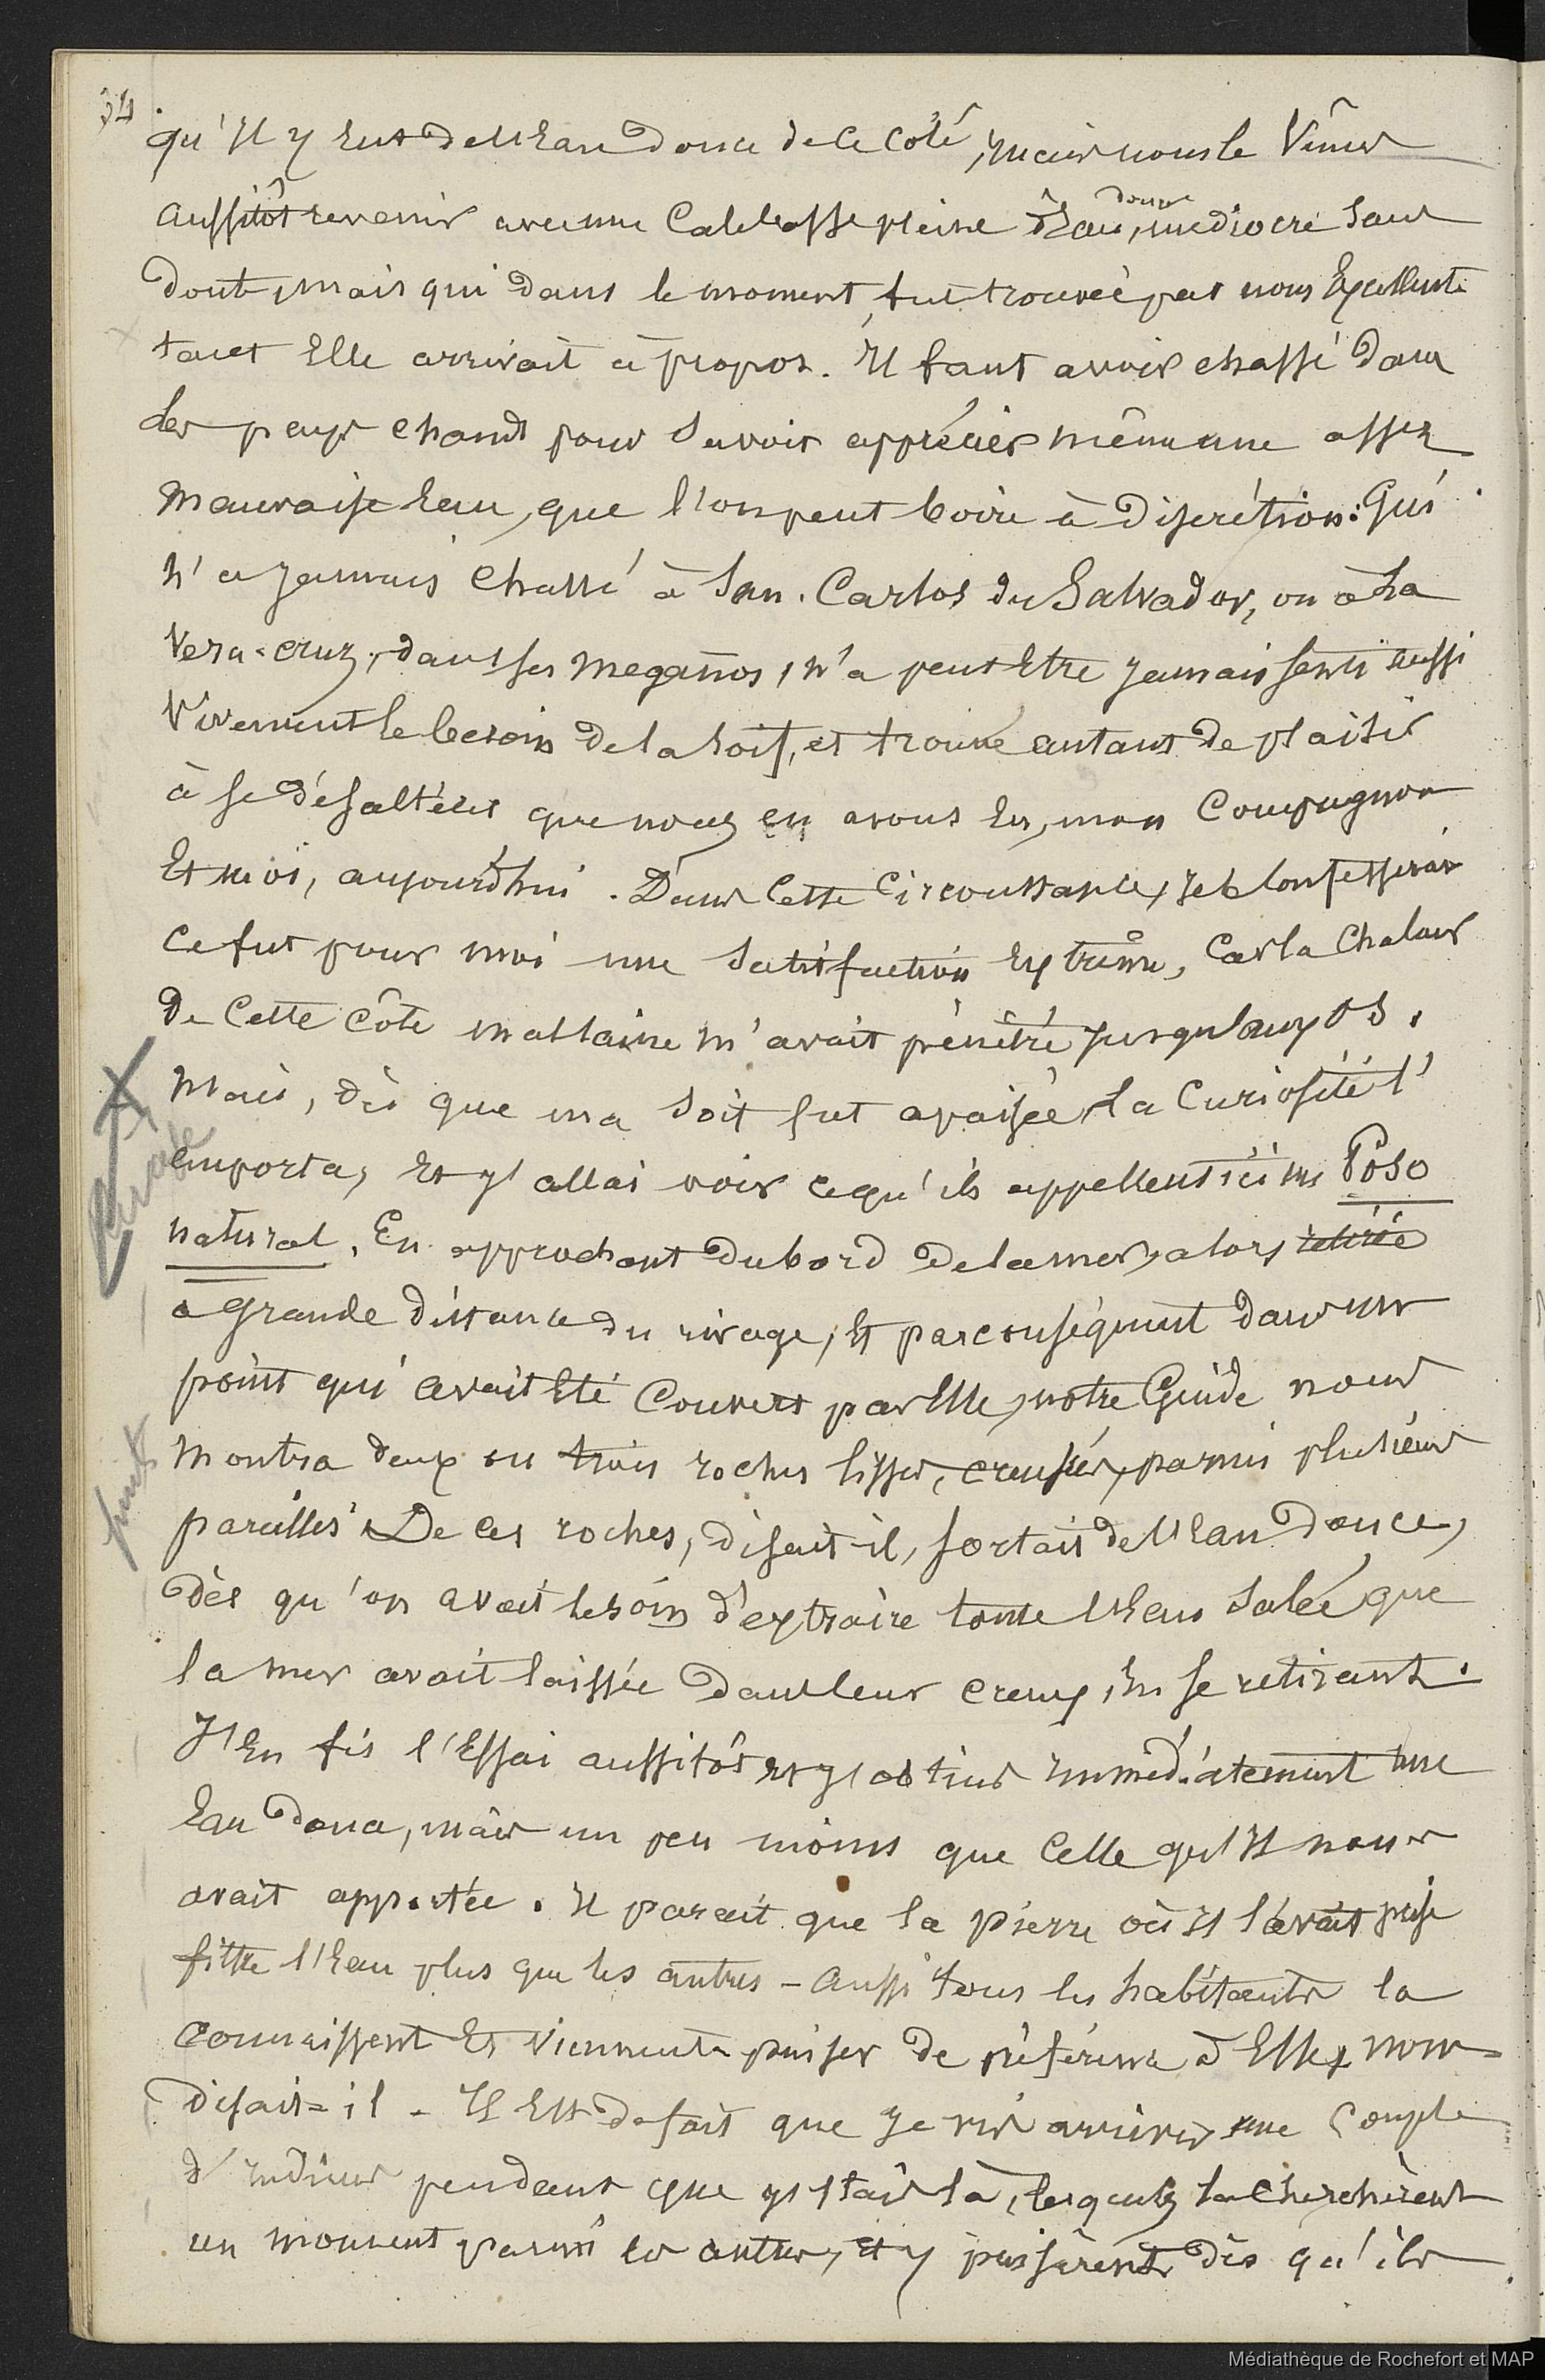 34
qu'Il y eut de l'Eau douce de ce côté, mais nous le Vimes
aussitôt revenir avec une Calebasse pleine d'Eau, douce médiocre sans
doute, mais qui dans le moment, fut trouvée par nous Excellente
tant Elle arrivait à propos. Il faut avoir chassé dans
les pays chauds pour savoir apprécier même une assez
Mauvaise Eau, que l'on peut boire à discrétion: Qui
n'a jamais chassé à San. Carlos du Salvador, ou à La
Vera-cruz, dans ses meganos, n'a peut Etre jamais senti aussi
Vivement le besoin de la soif, et trouvé autant de plaisir
à se désaltérer que nous en avons Eu, mon Compagnon
Et moi, aujourd'hui. Dans Cette Circonstance, je le Confesserai
Ce fut pour moi une satisfaction Extrême, Car la Chaleur
De Cette Côte malsaine m'avait pénétré jusqu'aux os.
Mais, dès que ma soif fut apaisée, la Curiosité l'
emporta, Et j'allai voir ce qu'ils appellent ici un Poso
natural. En approchant du bord de la mer, alors retirée
à grande distance du rivage, Et par conséquent dans un
point qui avait Eté Couvert par Elle, notre Guide nous
montra deux ou trois roches lisses, creusées, parmi plusieurs
pareilles. De ces roches, disait-il, sortait de l'Eau douce,
Dès qu'on avait besoin d'extraire toute l'Eau salée que
la mer avait laissée dans leur creux, En se retirant.
J'En fis l'Essai aussitôt Et j'obtins Immédiatement une
Eau douce, mais un peu moins que Celle qu'Il nous
avait apportée. Il parait que la pierre où Il l'avait prise
filtre l'Eau plus que les autres - aussi tous les habitants la
Connaissent Et Viennent puiser de préférence à Elle, nous
disait-il - Il Est de fait que je vis arriver une Couple
d'Indiens pendant que j'Etais là, lesquels la cherchèrent
un moment parmi les autres, et y puisèrent dès qu'ils
puits
Médiathèque de Rochefort et MAP